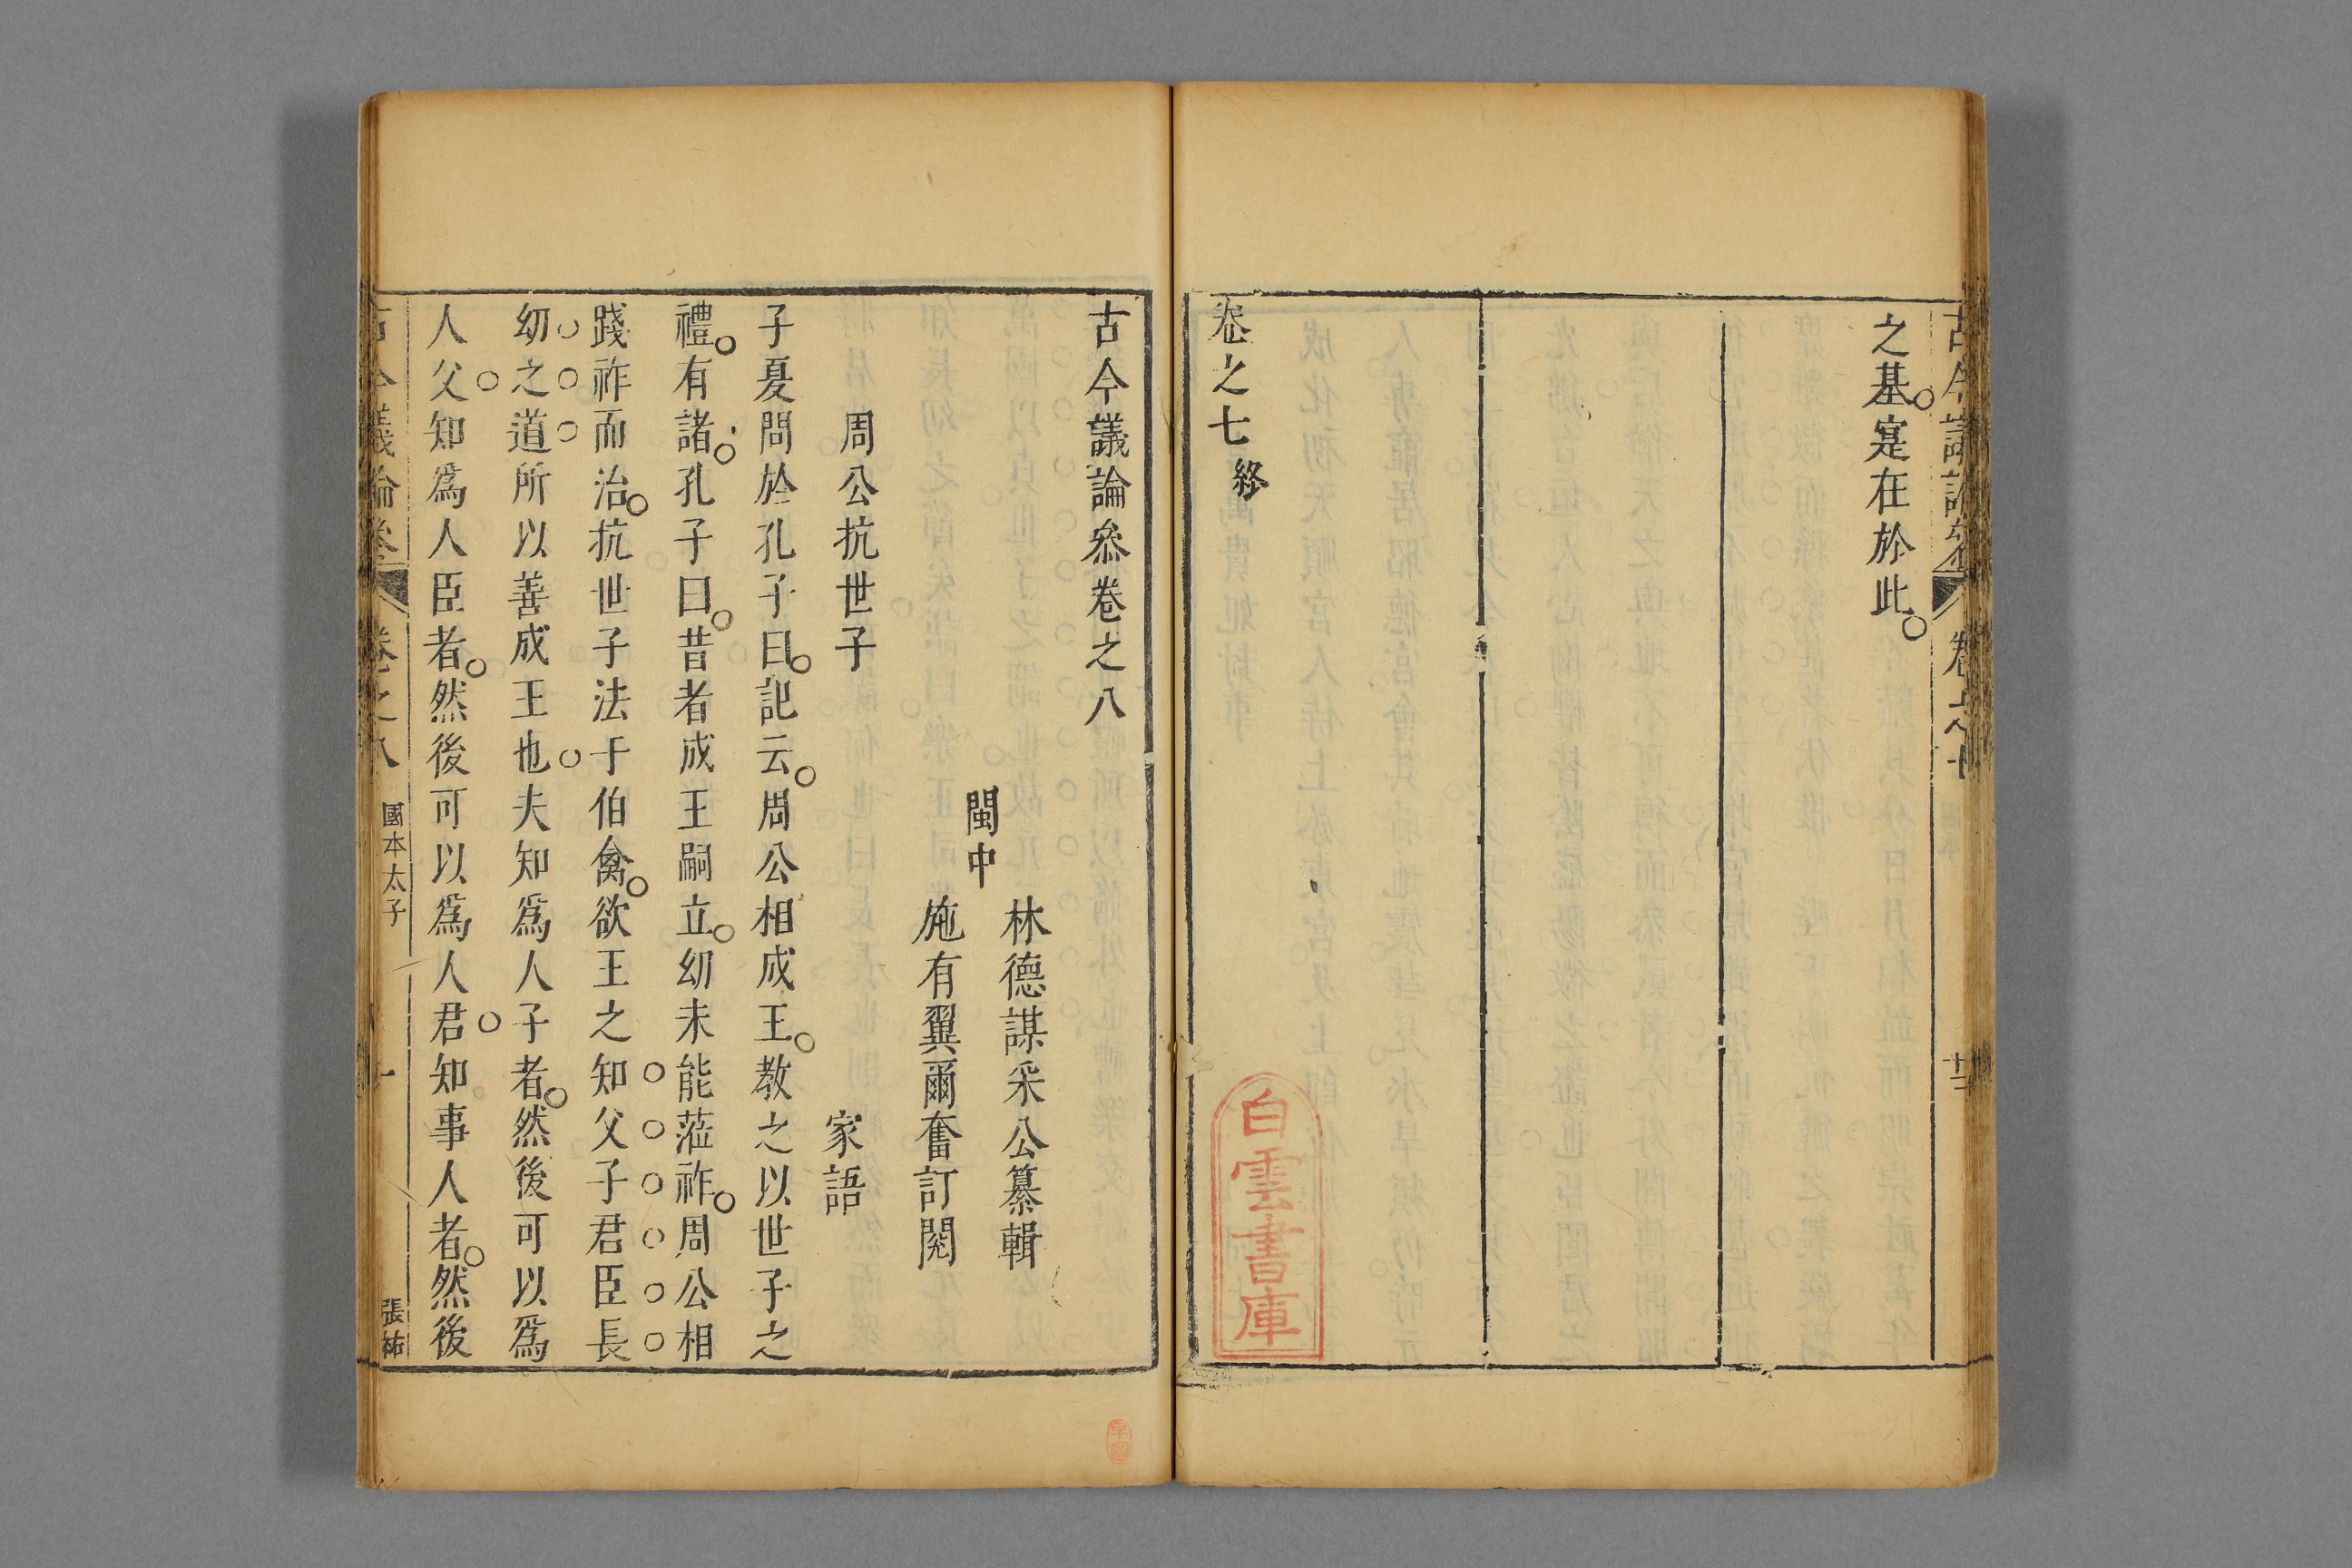 之基寔在於此
卷之七終
白雲書庫
古今議論叅卷之八
閩中
林德謀采公纂輯
施有翼爾奮訂閱
周公抗世子
家語
子憂問於孔子曰記云周公相成王教之以世子之
禮有諸孔子曰昔者成王嗣立幼未能蒞祚周公相
踐祚而治抗世子法于伯禽欲王之知父子君臣長
幼之道所以善成王也夫知爲人子者然後可以爲
人父知爲人臣者然後可以爲人君知事人者然後
古今議論叅
卷之八
國本太子
一
張祐